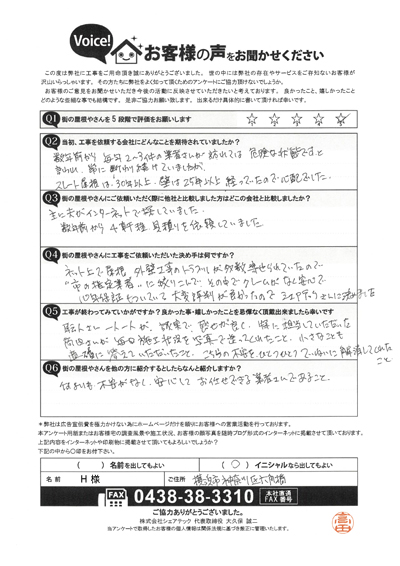 Voice!
お客様の声をお聞かせください
この度は弊社に工事をご用命頂き誠にありがとうございました。世の中には弊社の存在やサービスをご存知ないお客様が
沢山いらっしゃいます。その方たちに弊社をよく知って頂くためのアンケートにご協力頂けないでしょうか。
お客様のご意見をお聞かせいただき今後の活動に反映させていただきたいと考えております。良かったこと、嬉しかったこと
どのような些細な事でも結構です。是非ご協力お願い致します。出来るだけ具体的に書いて頂ければ幸いです。
Q1 街の屋根やさんを5段階で評価をお願いします ☆ ☆ ☆ ☆ ☆
Q2 当初、工事を依頼する会社にどんなことを期待されていましたか?
数年前から 毎年2~3件の業者さんが訪れては 危険な状態ですと
言われ、常に断わり続けていましたが、
スレート屋根は30年以上、壁は25年以上 経っていたので心配でした。
Q3 街の屋根やさんにご依頼いただく際に他社と比較しました方はどこの会社と比較しましたか?
主に夫がインターネットで探していました。
数年前から 4、5軒程 見積りを依頼していました
Q4 街の屋根やさんに工事をご依頼いただいた決め手は何ですか?
ネット上で屋根 外壁工事のトラブルが多数寄せられていたので
"市の指定業者"に絞りこんで その中でクレームがなく安心で
Q5 工事が終わってみていかがですか?良かった事・嬉しかったことを忌憚なく頂戴出来ましたら幸いです
職人さん一人一人が、誠実で、感じが良く、特に担当していただいた
Q6 街の屋根やさんを他の方に紹介するとしたらなんと紹介しますか?
何よりも 不安がなく、安心して お任せできる業者さんであること。
＊弊社は広告宣伝費を極力かけない為にホームページだけを頼りにお客様への営業活動を行っております。
＊本アンケート用紙またはお客様宅の調査風景や施工状況、お客様の顔写真を随時ブログ形式のインターネットに掲載させて頂いております。
上記内容をインターネットや印刷物に掲載させて頂いてもよろしいでしょうか?
下記の中から〇印をお付け下さい。
( )名前を出してもよい (〇)イニシャルなら出してもよい
名前 H様 ご住所 横浜市神奈川区六角橋
FAX 0438-38-3310 本社直通 FAX番号
ご協力ありがとうございました。
株式会社シェアテック 代表取締役 大久保 誠二
当アンケートで取得したお客様の個人情報は関係法規に基づき厳正に管理いたします。